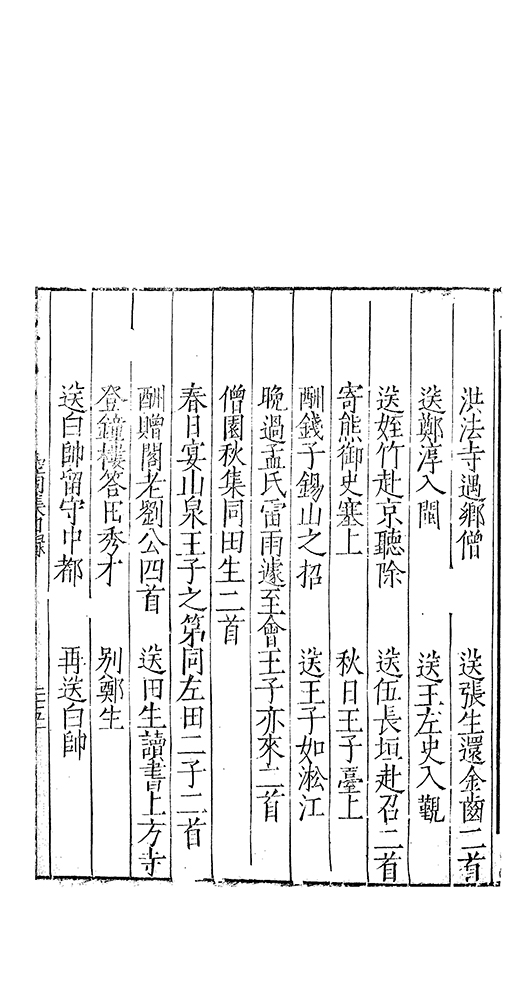 洪法寺遇鄉僧 送張生還金齒二首
送鄭淳入閩 送王左史入覲
送姪竹赴京聽除 送伍長垣赴召二首
寄熊御史塞上 秋日王子臺上
酬錢子錫山之招 送王子如淞江
晚過孟氏雷雨遽至會王子亦來二首
僧園秋集同田生二首
春日宴山泉王子之第同左田二子二首
酬贈閣老劉公四首 送田生讀書上方寺
登鐘樓答田秀才 别鄭生
送白帥留守中都 再送白帥
空同集目錄